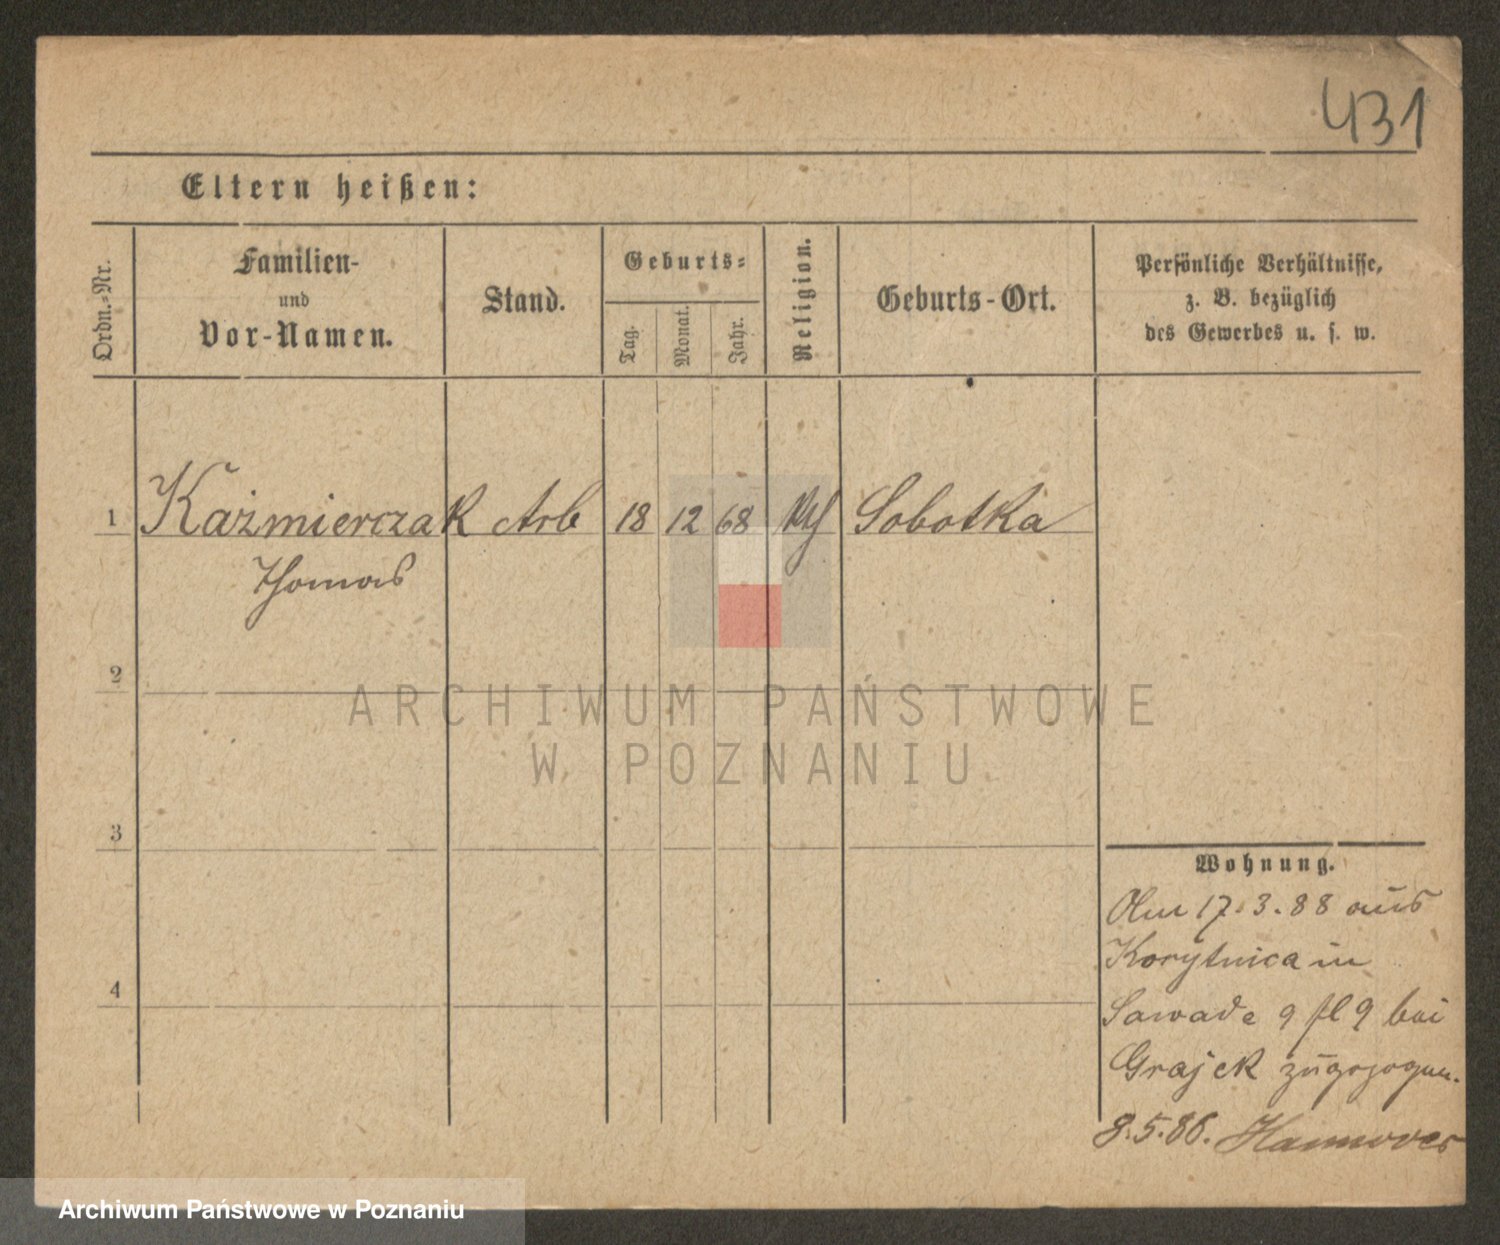 431
Eltern heißen:
Ordn.-Nr.
Familien-
und
Vor-Namen.
Stand.
Geburts-
Tag.
Monat.
Jahr.
Religion.
Geburts-Ort.
Persönliche Verhältnisse,
z. B. bezüglich
des Gewerbes u. s. w.
1 Kaźmierczak Arb 18 12 68 Sobotka
Thomas
2
3
4
Wohnung.
Am 17.3.88 aus
Korytnica in
Sawade 9 bei
Grajek zugezogen.
8.5.86. Hannover
ARCHIWUM PAŃSTWOWE
W POZNANIU
Archiwum Państwowe w Poznaniu